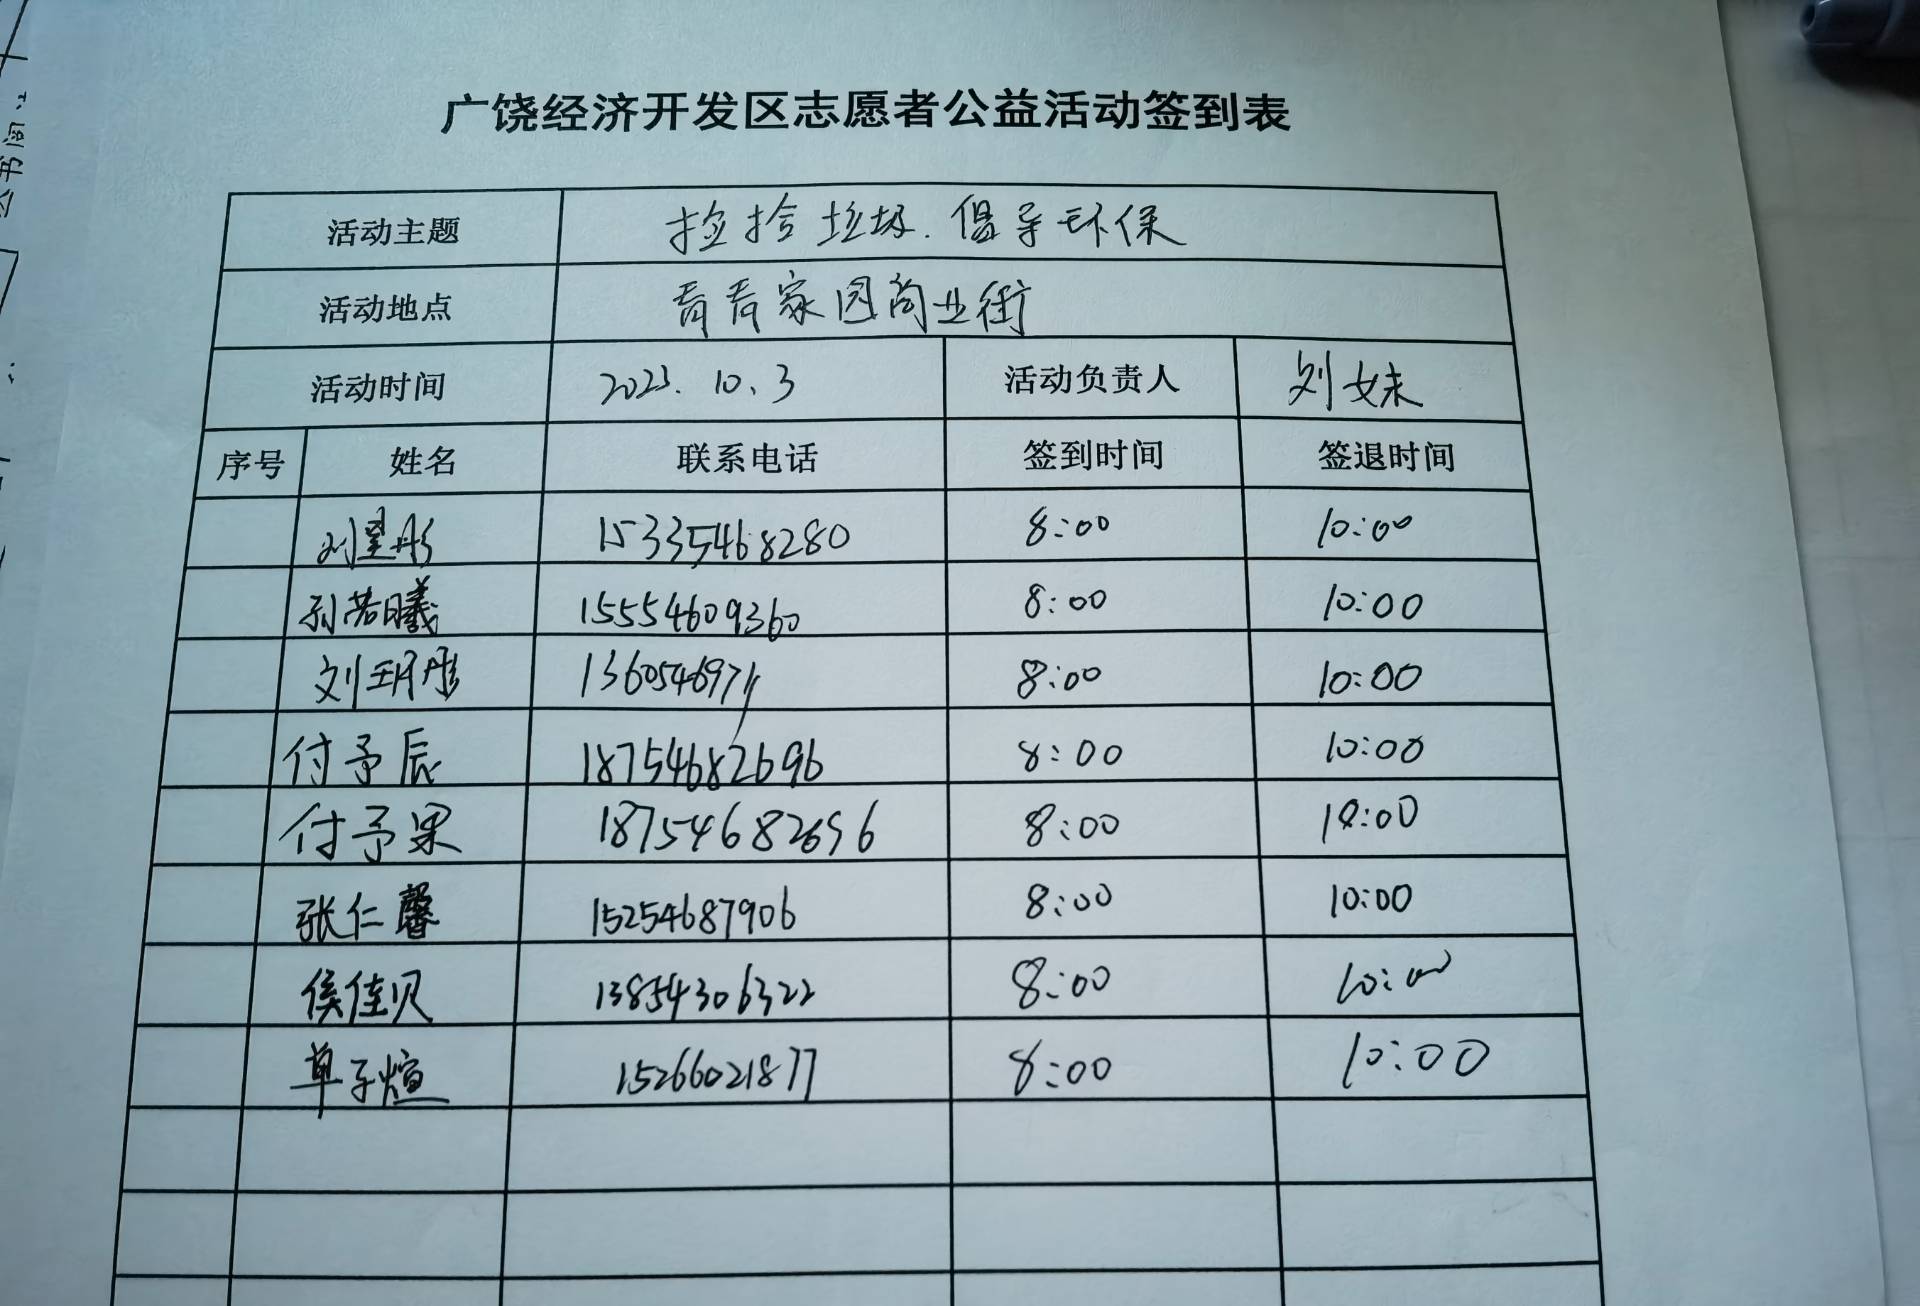 广饶经济开发区志愿者公益活动签到表
活动主题 捡拾垃圾.倡导环保
活动地点 青青家园商业街
活动时间 2023.10.3 活动负责人 刘妹
序号 姓名 联系电话 签到时间 签退时间
刘星彤 15335468280 8:00 10:00
孙若曦 15554609360 8:00 10:00
刘玥彤 13605469711 8:00 10:00
付予辰 18754682696 8:00 10:00
付予果 18754682696 8:00 10:00
张仁馨 15254687906 8:00 10:00
侯佳贝 13854306322 8:00 10:00
单子煊 15266021877 8:00 10:00